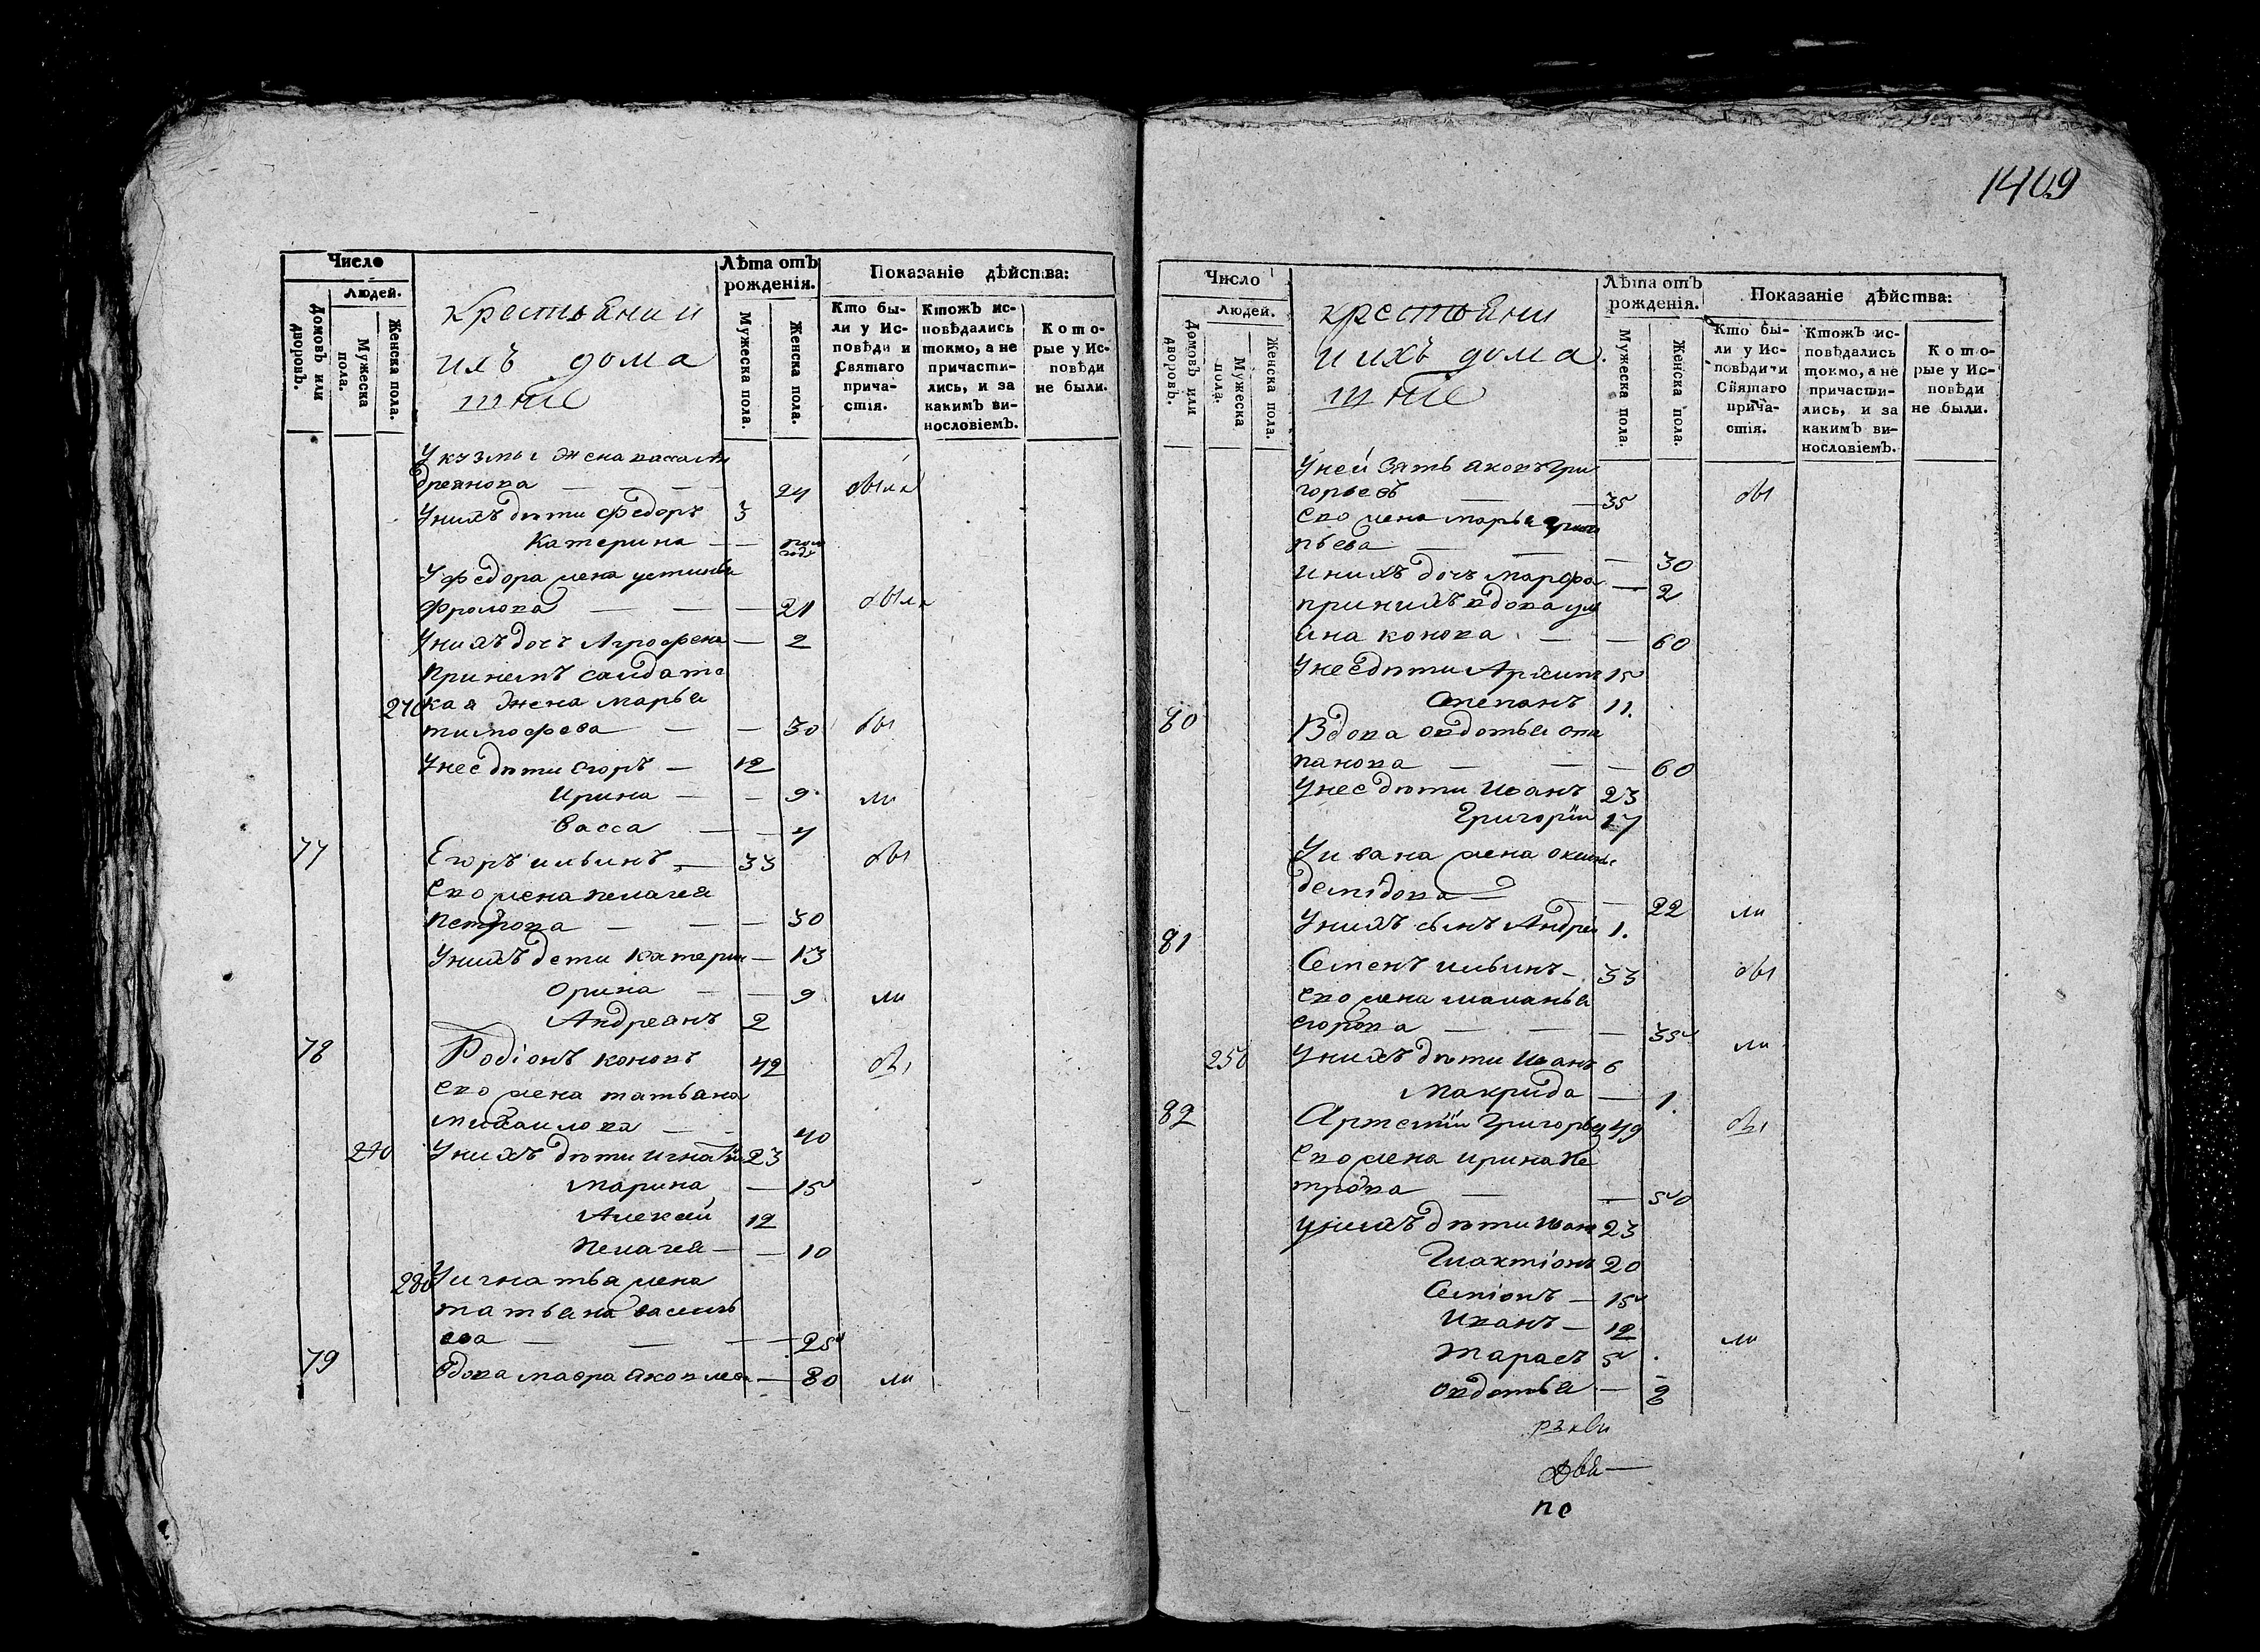 1409
Число
Людей.
Домовъ или дворовъ.
Мужеска пола.
Женска пола.
крестьяни и
ихъ дома
шніе
Лѣта отъ рожденія.
Мужеска пола.
Женска пола.
Показаніе дѣйства:
Кто были у Исповѣди и Святаго причастія.
Ктожъ исповѣдались токмо, а не причастились, и за какимъ винословіемъ.
Которые у Исповѣди не были.
У кузмы жена
дреянова — — — 24 были
У нихъ дѣти Федоръ 3
Катерина — — пол года
У федора жена устинья
фролова — — — 21 были
У нихъ дочъ Агрофена — 2
При немъ салдатс
270 кая жена марья
тимофева — — — 30 бы
У нее дѣти егоръ — 12
Ирина — — 9 ли
Васса — — 4
77 Егоръ ильинъ — 33 бы
Ево жена пелагея
петрова — — — 30
У нихъ дети катерин — 13
Орина — — 9 ли
Андреянъ 2
78 Родіонъ коновъ 42 бы
Ево жена татьяна
михаилова — — 40
240 У нихъ дѣти игнатіи 23
Марина — 15
Алексей 12
Пелагея — — 10
280 У игнатья жена
татьяна василь
ева — — — 25
79 Вдова мавра яковлева — 80 ли
Число
Людей.
Домовъ или дворовъ.
Мужеска пола.
Женска пола.
крестьяни
и ихъ дома
шніе
Лѣта отъ рожденія.
Мужеска пола.
Женска пола.
Показаніе дѣйства:
Кто были у Исповѣди и Святаго причастія.
Ктожъ исповѣдались токмо, а не причастились, и за какимъ винословіемъ.
Которые у Исповѣди не были.
У ней зять яковъ гри
горьевъ — — 35 бы
Ево жена марья
пьева — — — 30
И нихъ дочъ марфа — 2
при нихъ вдова
яна конова — — 60
У нее дѣти Архипъ 15
Степанъ 11.
80 Вдова овдотья сте
панова — — — 60
У нее дѣти Иванъ 23
Григоріи 17
У ивана жена
демідова — — 22 ли
У нихъ сынъ Андреи 1.
81 Семенъ ильинъ — 33 бы
Ево жена маланья
егорова — — — 35
250 У нихъ дѣти Иванъ 6 ли
Макрида — 1.
82 Артеміи Григорьев 49 бы
Ево жена ирина пе
трова — — 50
У нихъ дѣти Иванъ 23
Глактіонъ 20
Семіонъ — 15
Иванъ — 12
Тарасъ 5 ли
Овдотья — 8